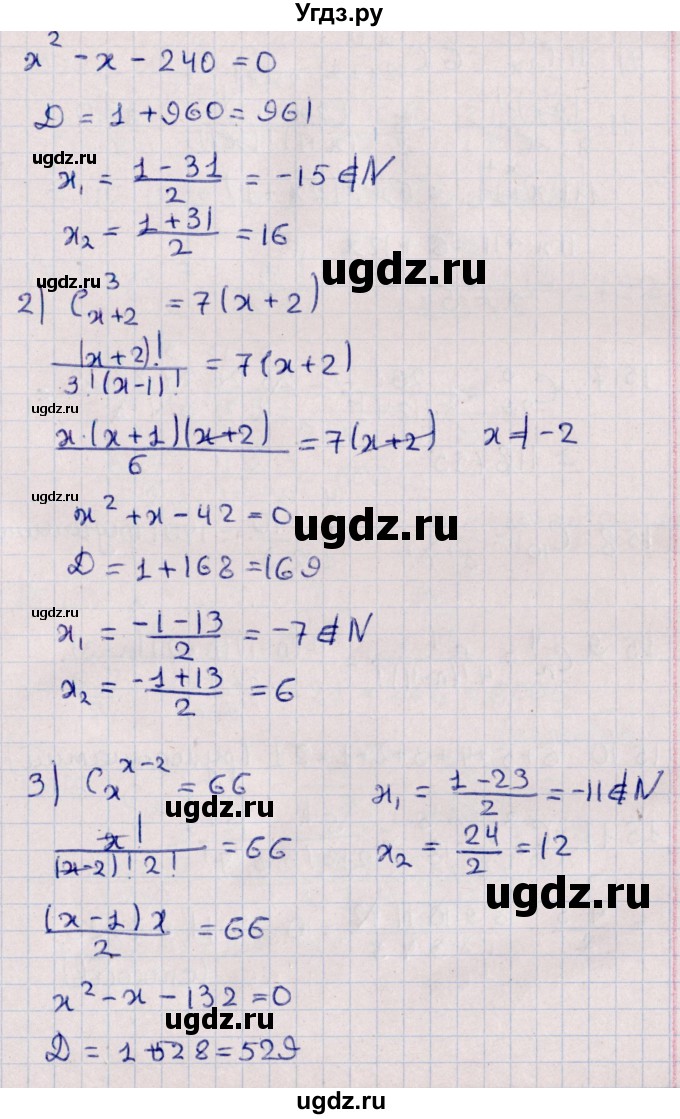 Угдз.ру
x² - x - 240 = 0
D = 1 + 960 = 961
ugdz.ru
x₁ = (1 - 31)/2 = -15 ∉ N
x₂ = (1 + 31)/2 = 16
ugdz.ru
ugdz.ru
2) C³ₓ₊₂ = 7(x + 2)
(x+2)!/(3!(x-1)!) = 7(x+2)
ugdz.ru
x·(x+1)(x+2)/6 = 7(x+2) x ≠ -2
ugdz.ru
x² + x - 42 = 0
ugdz.ru
D = 1 + 168 = 169
ugdz.ru
x₁ = (-1 - 13)/2 = -7 ∉ N
x₂ = (-1 + 13)/2 = 6
3) Cₓˣ⁻² = 66
x₁ = (1 - 23)/2 = -11 ∉ N
ugdz.ru
x!/((x-2)!2!) = 66
x₂ = 24/2 = 12
ugdz.ru
(x-1)x/2 = 66
x² - x - 132 = 0
ugdz.ru
D = 1 + 528 = 529
ugdz.ru